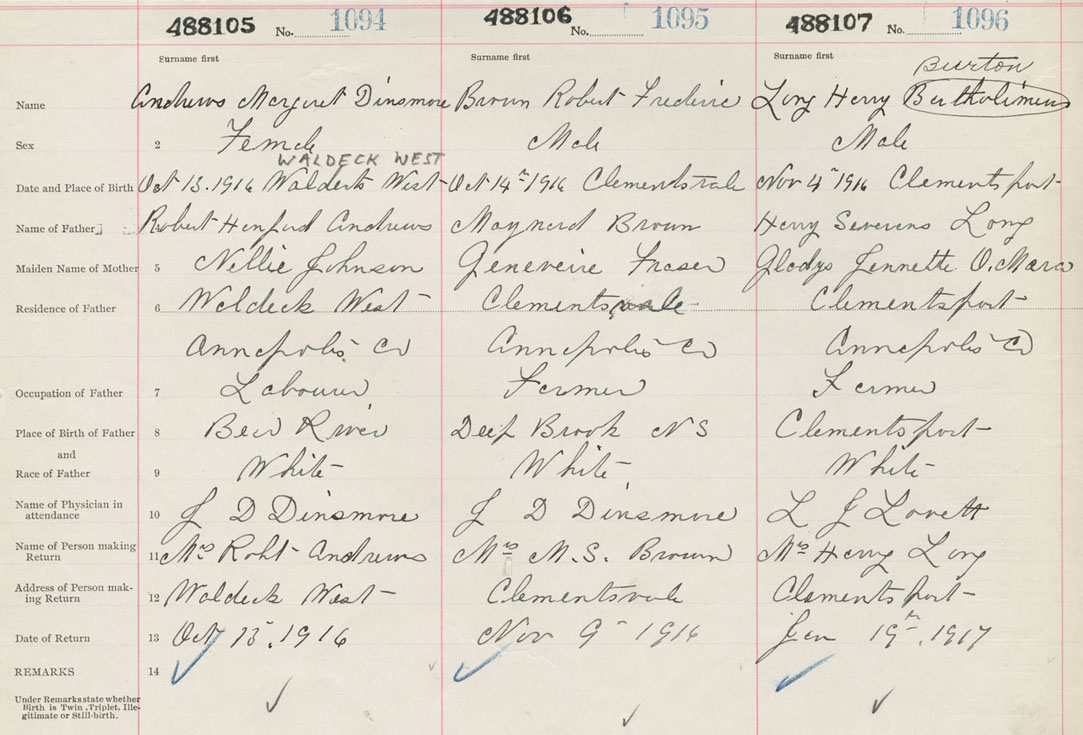 488105 No. 1094 488106 No. 1095 488107 No. 1096
Surname first Surname first Surname first
Burton
Name Andrews Margaret Dinsmore Brown Robert Frederic Long Henry Bartholimew
Sex 2 Female Male Male
WALDECK WEST
Date and Place of Birth Oct 13. 1916 Waldeck West Oct 14th 1916 Clementsvale Nov 4th 1916 Clementsport
Name of Father Robert Andrews Maynard Brown Henry Severens Long
Maiden Name of Mother 5 Nellie Johnson Geneveive Fraser Gladys Jennette O.Mara
Residence of Father 6 Waldeck West Clementsvale Clementsport
Annapolis Co Annapolis Co Annapolis Co
Occupation of Father 7 Labourer Farmer Farmer
Place of Birth of Father 8 Bear River Deep Brook N S Clementsport
and
Race of Father 9 White White White
Name of Physician in
attendance 10 J D Dinsmore J D Dinsmore L J Lovett
Name of Person making
Return 11 Mrs Robt Andrews Mrs M.S. Brown Mrs Henry Long
Address of Person mak-
ing Return 12 Waldeck West Clementsvale Clementsport
Date of Return 13 Oct 1916 Nov 9th 1916 Jan 19th. 1917
REMARKS 14
Under Remarks state whether
Birth is Twin, Triplet, Ille-
gitimate or Still-birth.